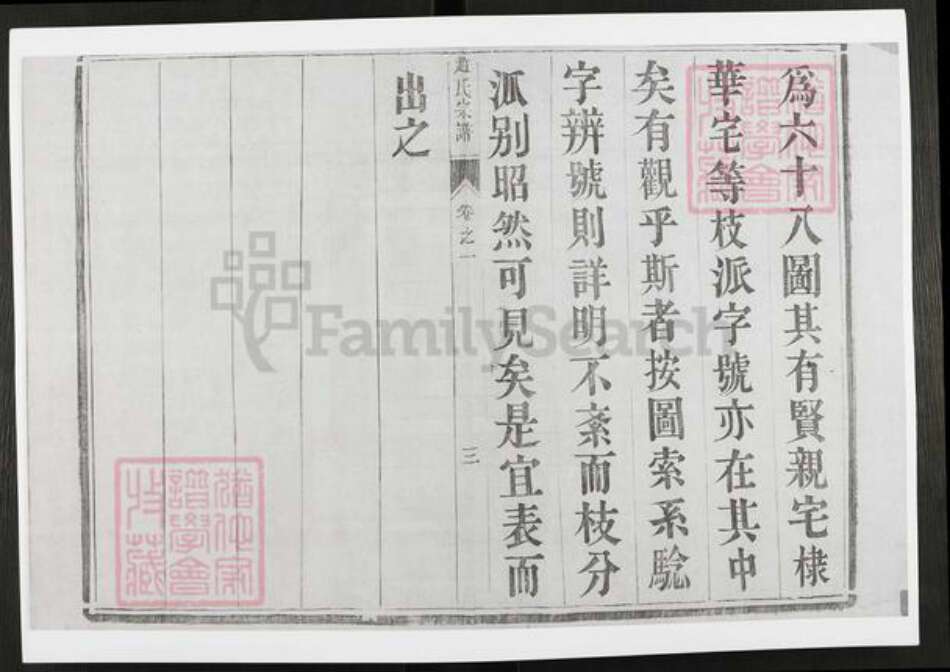 爲六十八圖其有賢親宅棣
華宅等枝派字號亦在其中
矣有觀乎斯者按圖索系騐
字辨號則詳明不紊而枝分
派别昭然可見矣是宜表而
出之
趙氏宗譜 卷之一 三
譜學會
FamilySearch
譜學會